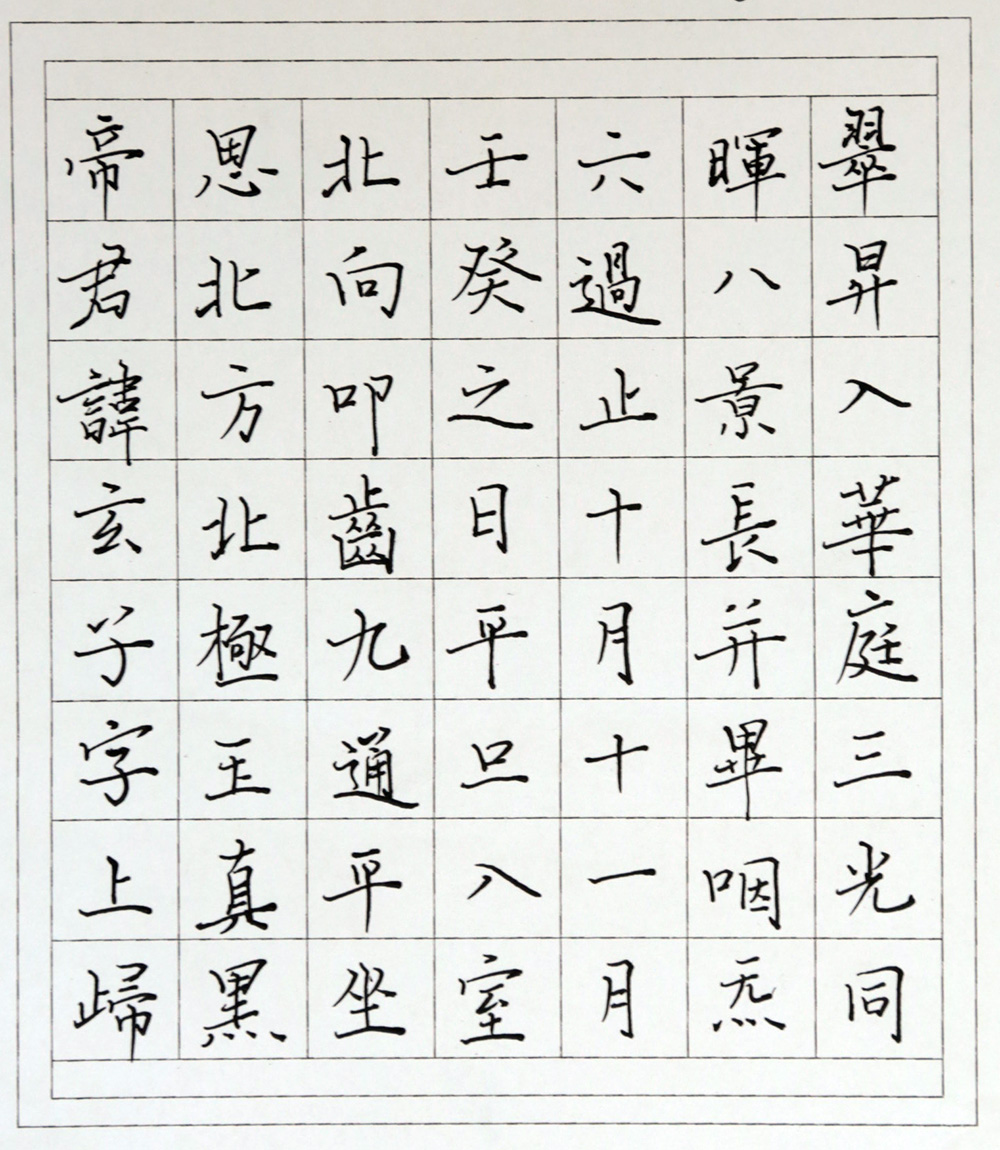 翠昇入華庭三光同
暉八景長并畢咽炁
六過止十月十一月
壬癸之日平旦入室
北向叩齒九通平坐
思北方北極玉真黑
帝君諱玄子字上歸